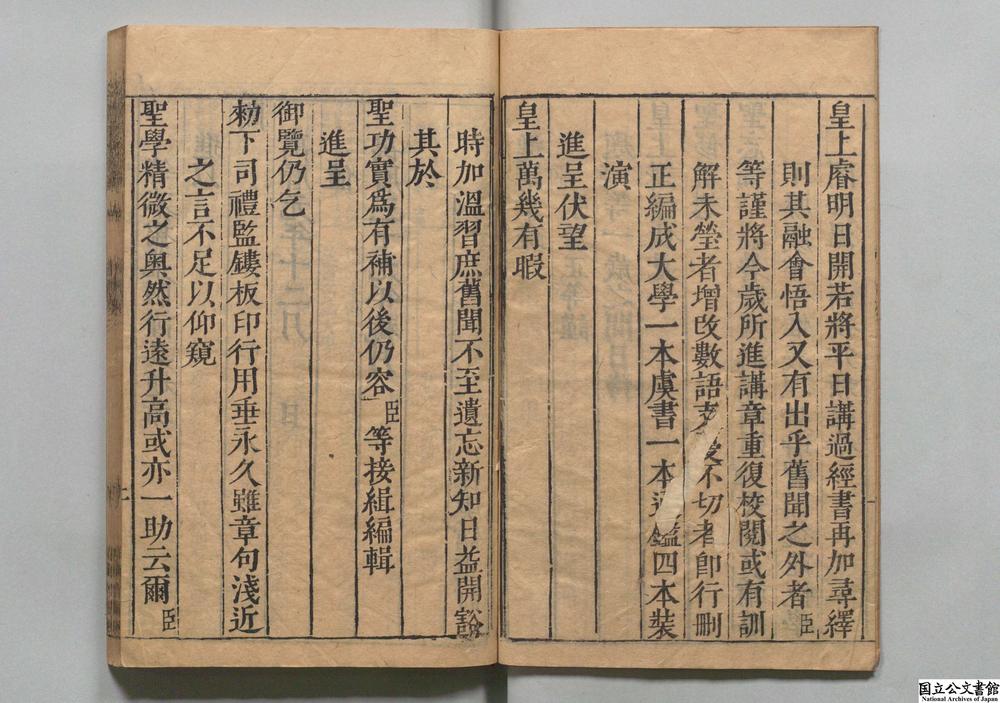 皇上睿明日開若將平日講過經書再加尋繹
則其融會悟入又有出乎舊聞之外者臣
等謹將今歲所進講章重復校閱或有訓
解未瑩者增改數語支不切者即行刪
正編成大學一本虞書一本通鑑四本裝
演
進呈伏望
皇上萬幾有暇
時加溫習庶舊聞不至遺忘新知日益開豁
其於
聖功實為有補以後仍容臣等接緝編輯
進呈
御覽仍乞
勑下司禮監鏤板印行用垂永久雖章句淺近
之言不足以仰窺
聖學精微之奧然行遠升高或亦一助云爾臣
国立公文書館
National Archives of Japan